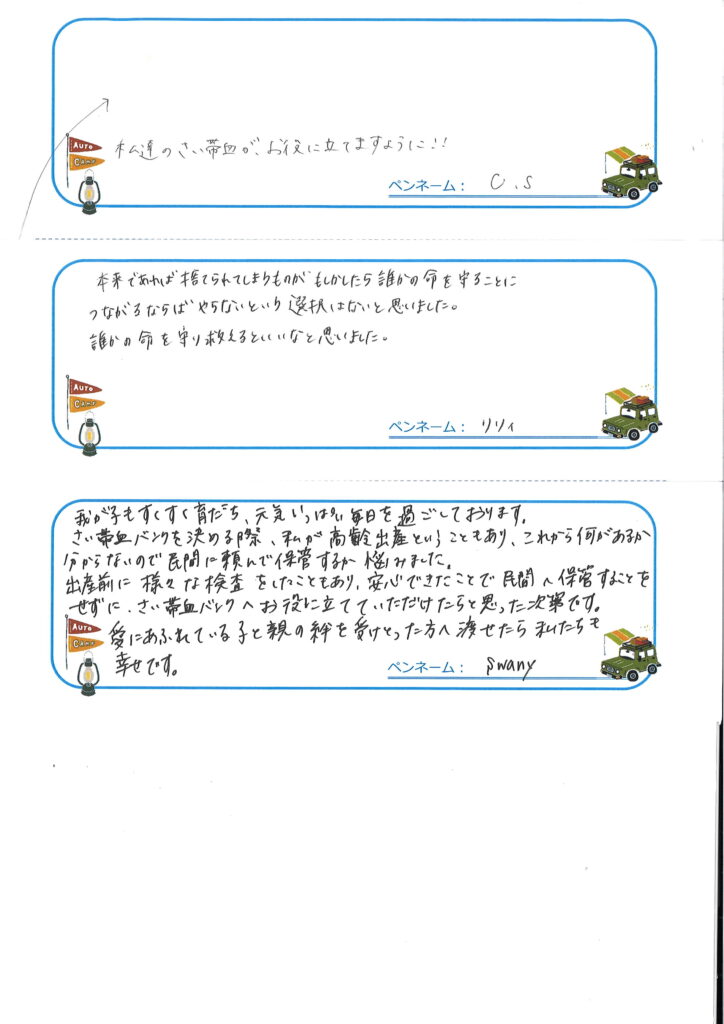 私達のさい帯血が、お役に立てますように!!
AUTO
Camp
ペンネーム： C.S
本来であれば捨てられてしまうものがもしかしたら誰かの命を守ることに
つながるならばやらないという選択はないと思いました。
誰かの命を守り救えるといいなと思いました。
AUTO
Camp
ペンネーム： リリィ
我が子もすくすく育だち、元気いっぱい毎日を過ごしております。
さい帯血バンクを決める際、私が高齢出産ということもあり、これから何があるか
分からないので民間に頼んで保管するか悩みました。
出産前に様々な検査をしたこともあり、安心できたことで民間へ保管することを
せずに、さい帯血バンクへお役に立てていただけたらと思った次第です。
愛にあふれている子と親の絆を受けとった方へ渡せたら私たちも
幸せです。
AUTO
Camp
ペンネーム： swany